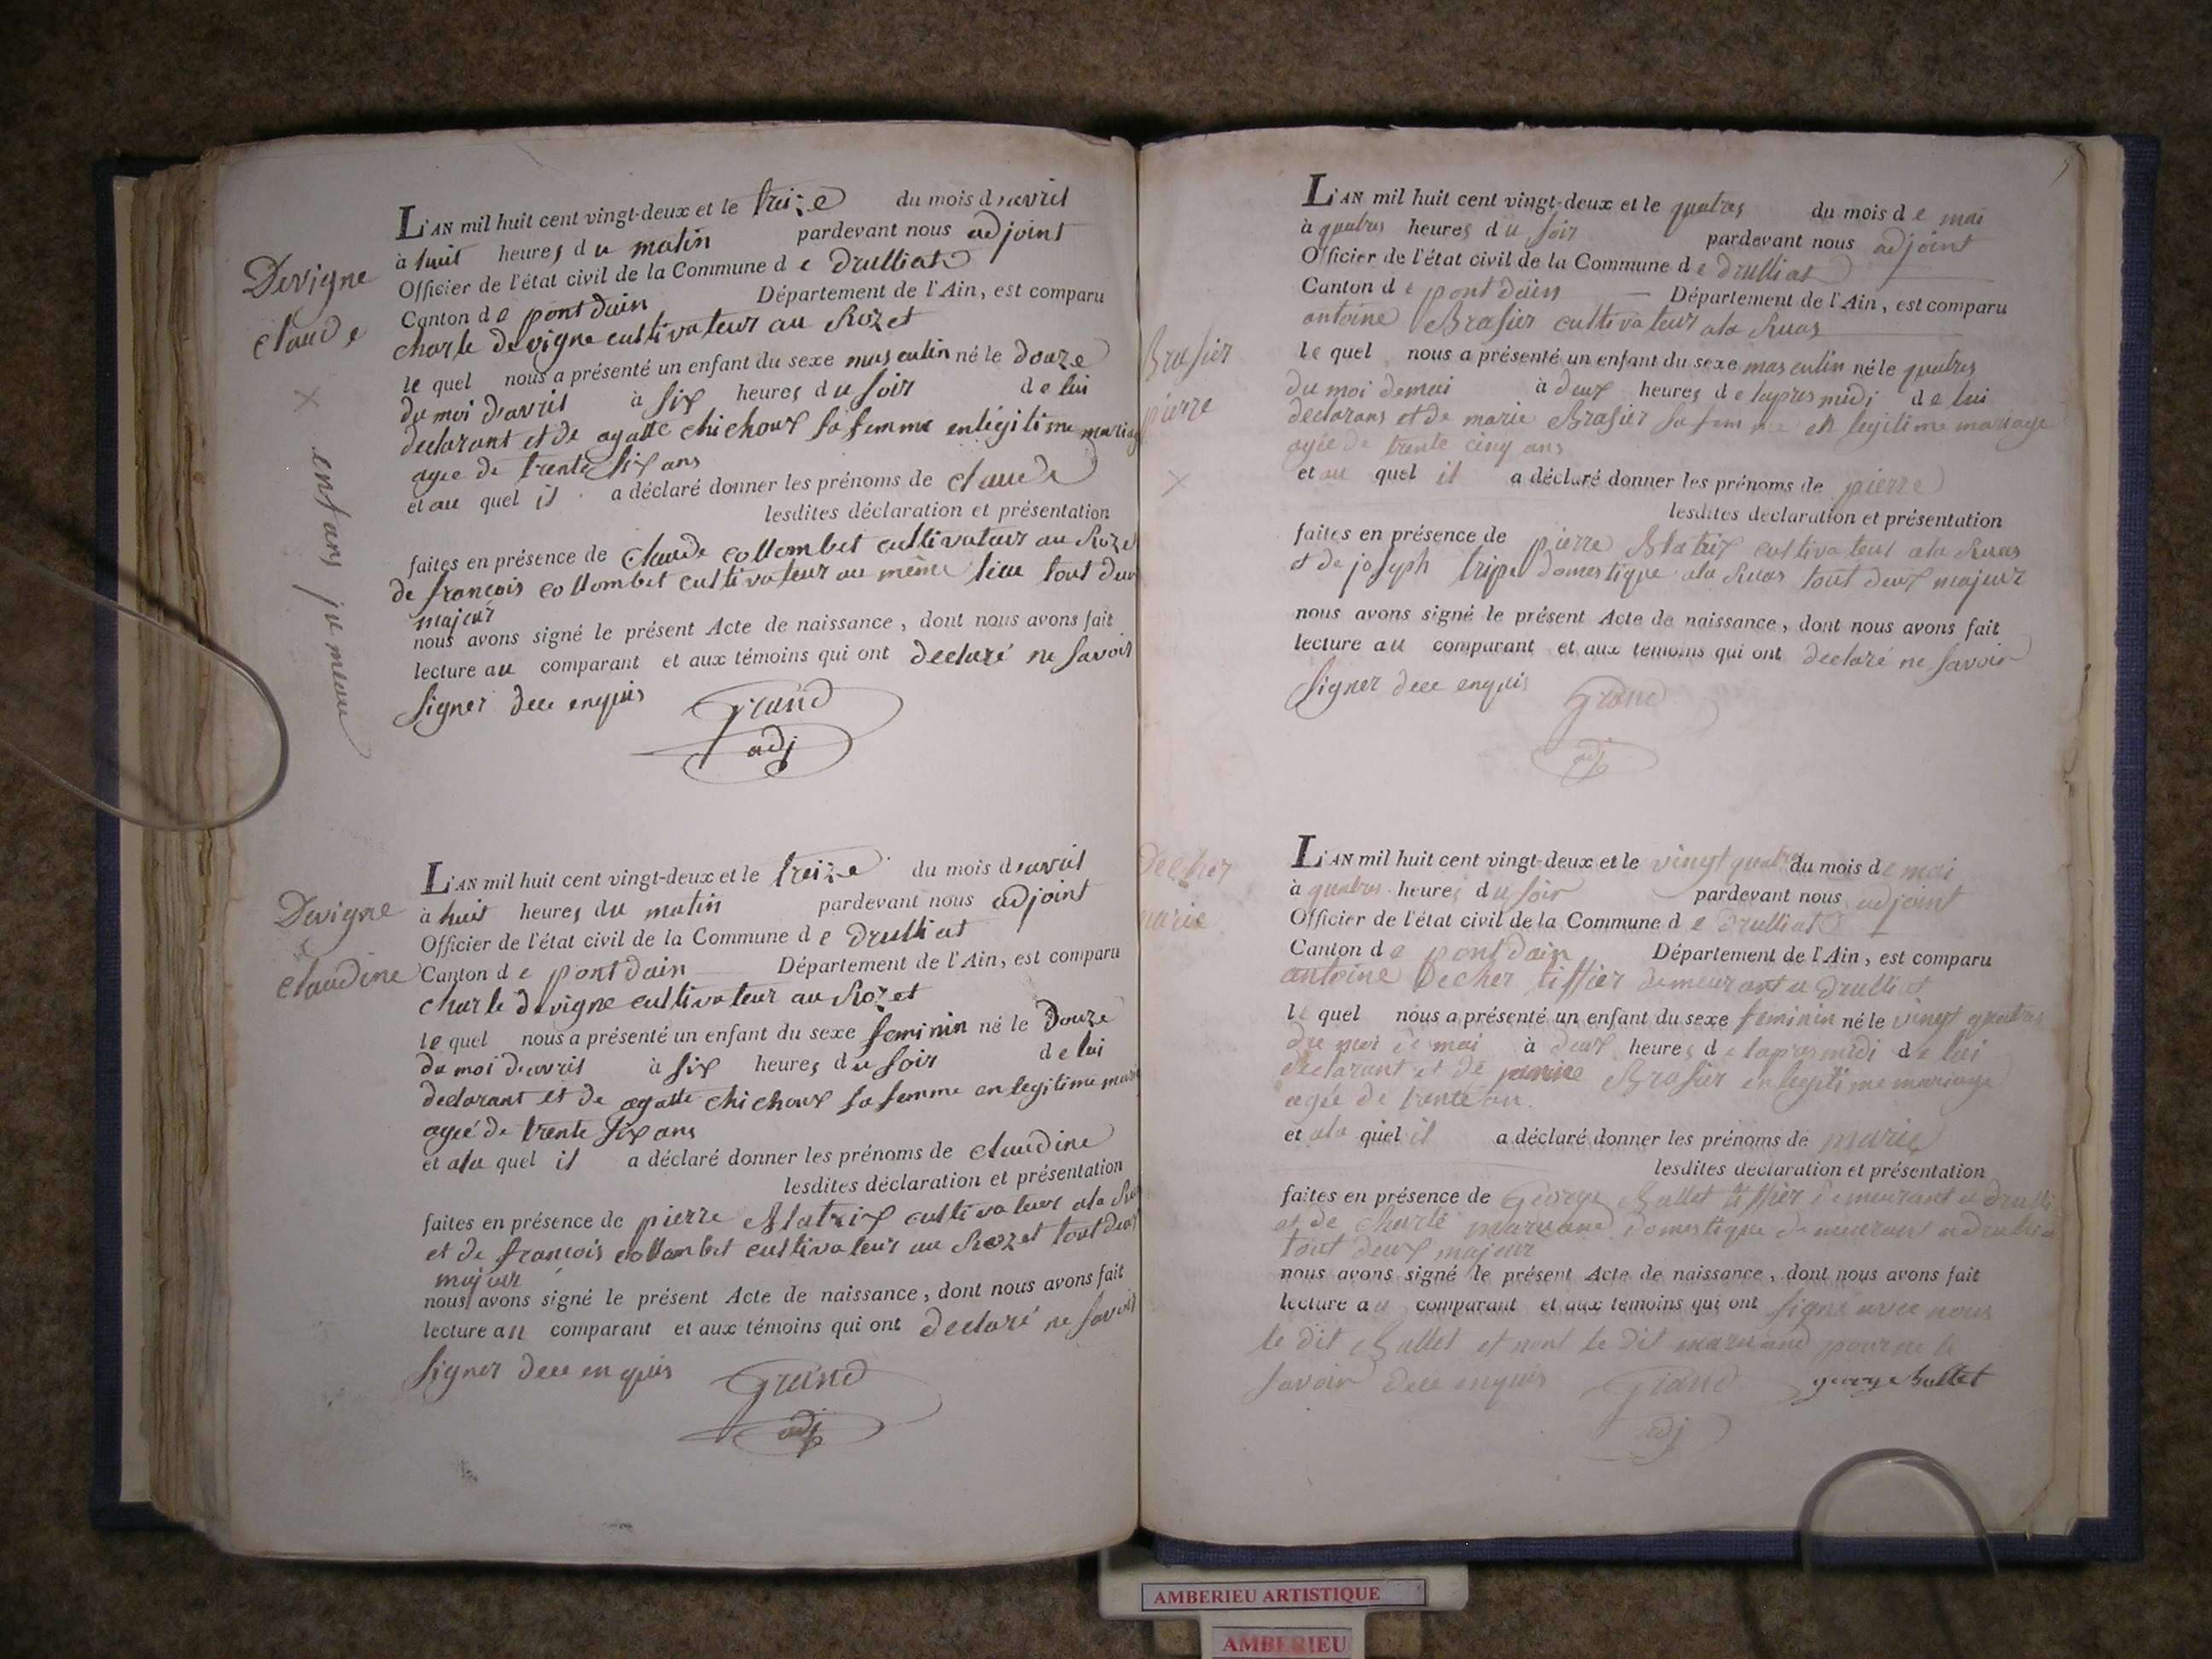 Devigne
claude
× enfans jumeau
L'AN mil huit cent vingt-deux et le treize du mois d'avril
à huit heures du matin pardevant nous adjoint
Officier de l'état civil de la Commune de Drulliat
Canton de pont dain Département de l'Ain, est comparu
charle devigne cultivateur au Rozet
le quel nous a présenté un enfant du sexe masculin né le douze
du moi d'avril à six heures du soir de lui
declarant et de agatte chichoux sa femme en légitime mariag
agee de trente six ans
et au quel il a déclaré donner les prénoms de claude
lesdites déclaration et présentation
faites en présence de Claude collombet cultivateur au Roze
de françois collombet cultivateur au même lieu tout deux
majeur
nous avons signé le présent Acte de naissance, dont nous avons fait
lecture au comparant et aux témoins qui ont declaré ne savoir
signer dece enquis Grand
adj
Devigne
claudine
L'AN mil huit cent vingt-deux et le treize du mois d'avril
à huit heures du matin pardevant nous adjoint
Officier de l'état civil de la Commune de Drulliat
Canton de pont dain Département de l'Ain, est comparu
charle devigne cultivateur au Rozet
le quel nous a présenté un enfant du sexe feminin né le Douze
du moi d'avril à six heures du soir de lui
declarant et de agatte chichoux sa femme en legitime mari
ageé de trente six ans
et ala quel il a déclaré donner les prénoms de claudine
lesdites déclaration et présentation
faites en présence de pierre Blatrix cultivateur ala Rua
et de françois collombet cultivateur au Rozet tout deux
majeur
nous avons signé le présent Acte de naissance, dont nous avons fait
lecture au comparant et aux témoins qui ont declaré ne savoir
signer dece enquis Grand
adj
Brasier
pierre
×
L'AN mil huit cent vingt-deux et le quatres du mois de mai
à quatres heures du soir pardevant nous adjoint
Officier de l'état civil de la Commune de Drulliat
Canton de pont dain Département de l'Ain, est comparu
antoine Brasier cultivateur ala Ruas
le quel nous a présenté un enfant du sexe masculin né le quatres
du moi demai à deux heures de lapres midi de lui
declarans et de marie Brasier sa femme en legitime mariage
agée de trente cinq ans
et au quel il a déclaré donner les prénoms de pierre
lesdites déclaration et présentation
faites en présence de pierre Blatrix cultivateur ala Ruas
et de joseph tripe domestique ala Ruas tout deux majeur
nous avons signé le présent Acte de naissance, dont nous avons fait
lecture au comparant et aux témoins qui ont declaré ne savoir
signer dece enquis Grand
adj
Decher
marie
L'AN mil huit cent vingt-deux et le vingt quatre du mois de mai
à quatres heures du soir pardevant nous adjoint
Officier de l'état civil de la Commune de Drulliat
Canton de pont dain Département de l'Ain, est comparu
antoine Decher tissier demeurant a Drulliat
le quel nous a présenté un enfant du sexe feminin né le vingt quatres
du moi de mai à deux heures de lapres midi de lui
declarant et de Brasier en legitime mariage
agée de trente an
et ala quel il a déclaré donner les prénoms de marie
lesdites déclaration et présentation
faites en présence de George Ballet tissier demeurant a Drulli
et de charle marward domestique demeurant a drullia
tout deux majeur
nous avons signé le présent Acte de naissance, dont nous avons fait
lecture au comparant et aux témoins qui ont signé avec nous
le dit Ballet et nont le dit marward pour ne le
savoir dece enquis Grand george ballet
adj
AMBERIEU ARTISTIQUE
AMBERIEU